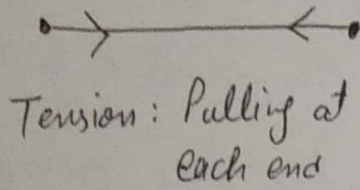 Tension: Pulling at
each end